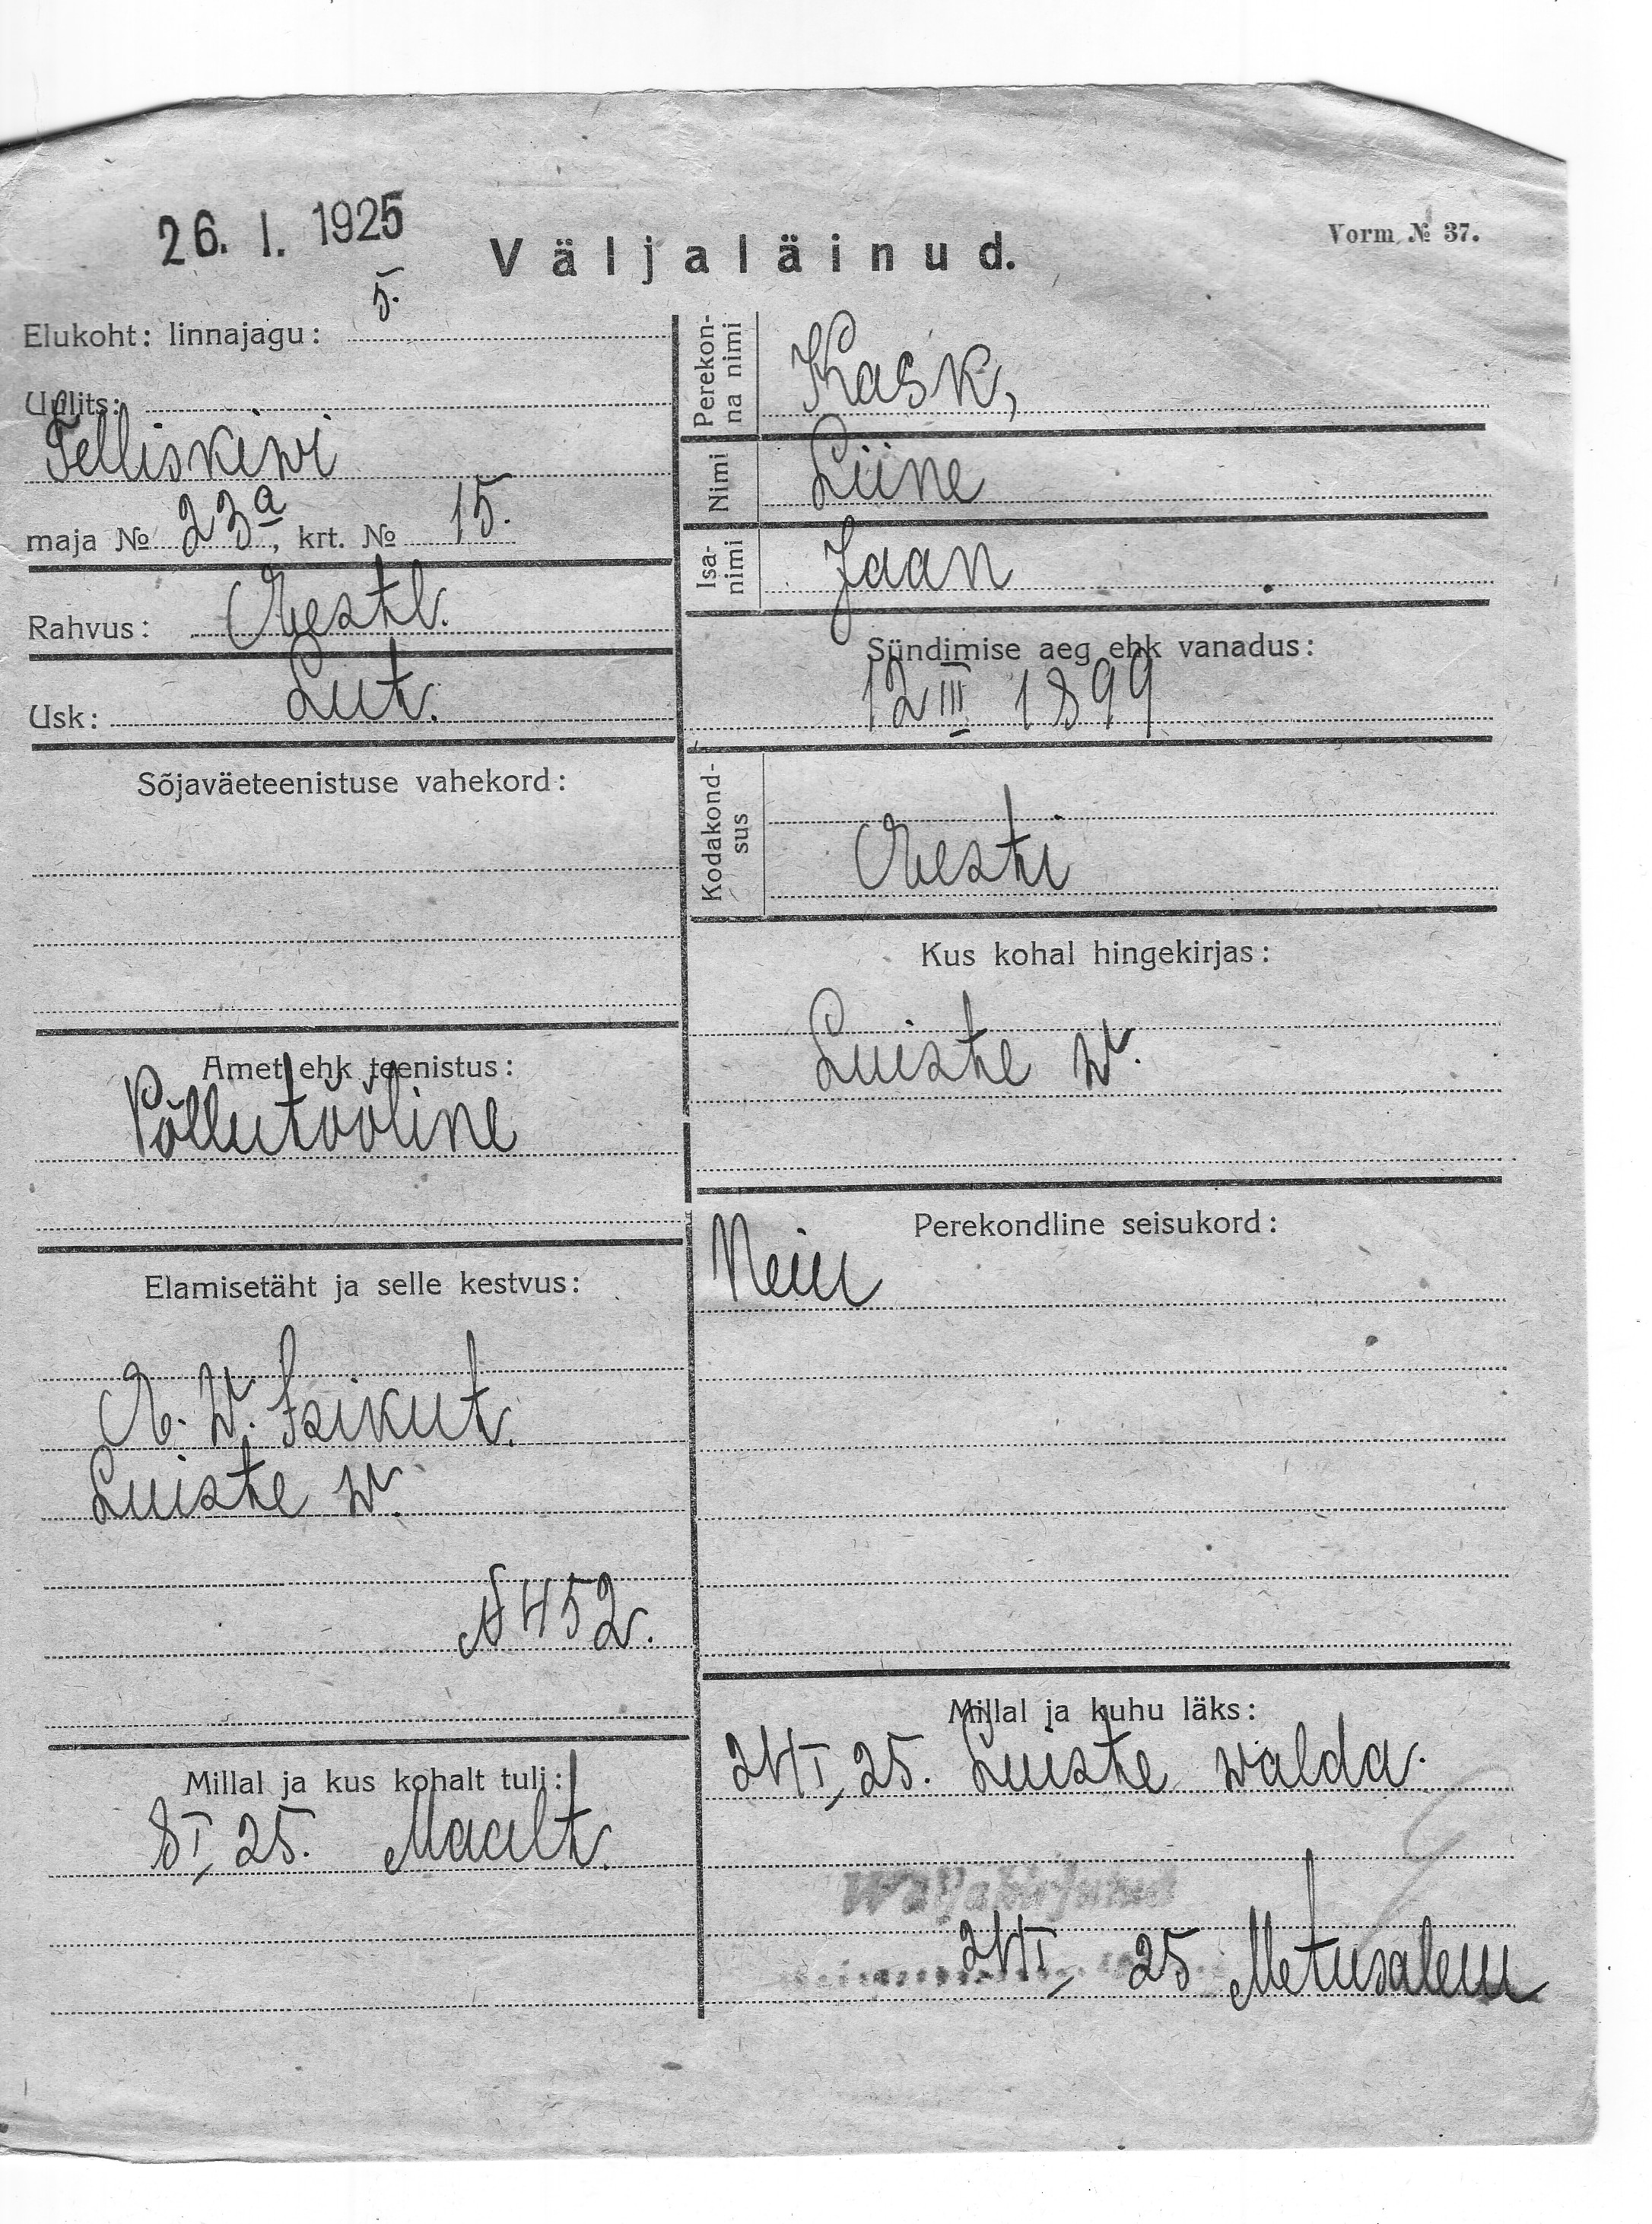 26. I. 1925
Väljaläinud.
Vorm № 37.
Elukoht: linnajagu: 5.
Uulits:
Telliskiwi
maja № 23a, krt. № 15.
Rahvus: Eestl.
Usk: Lut.
Sõjaväeteenistuse vahekord:
Amet ehk teenistus:
Põllutööline
Elamisetäht ja selle kestvus:
E. W. Isikut.
Luiste w.
№ 452.
Millal ja kus kohalt tuli:
8 I 25. Maalt.
Perekon-
na nimi
Kask,
Nimi
Liine
Isa-
nimi
Jaan
Sündimise aeg ehk vanadus:
12 III 1899
Kodakond-
sus
Eesti
Kus kohal hingekirjas:
Luiste w.
Perekondline seisukord:
Neiu
Millal ja kuhu läks:
24 I 25. Luiste walda.
Wäljakirjutud
24 I 25 Metusalem